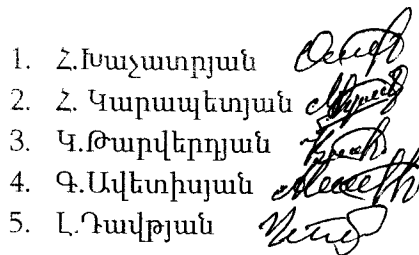 1. Հ.Խաչատրյան
2. Հ. Կարապետյան
3. Կ.Թարվերդյան
4. Գ.Ավետիսյան
5. Լ.Դավթյան